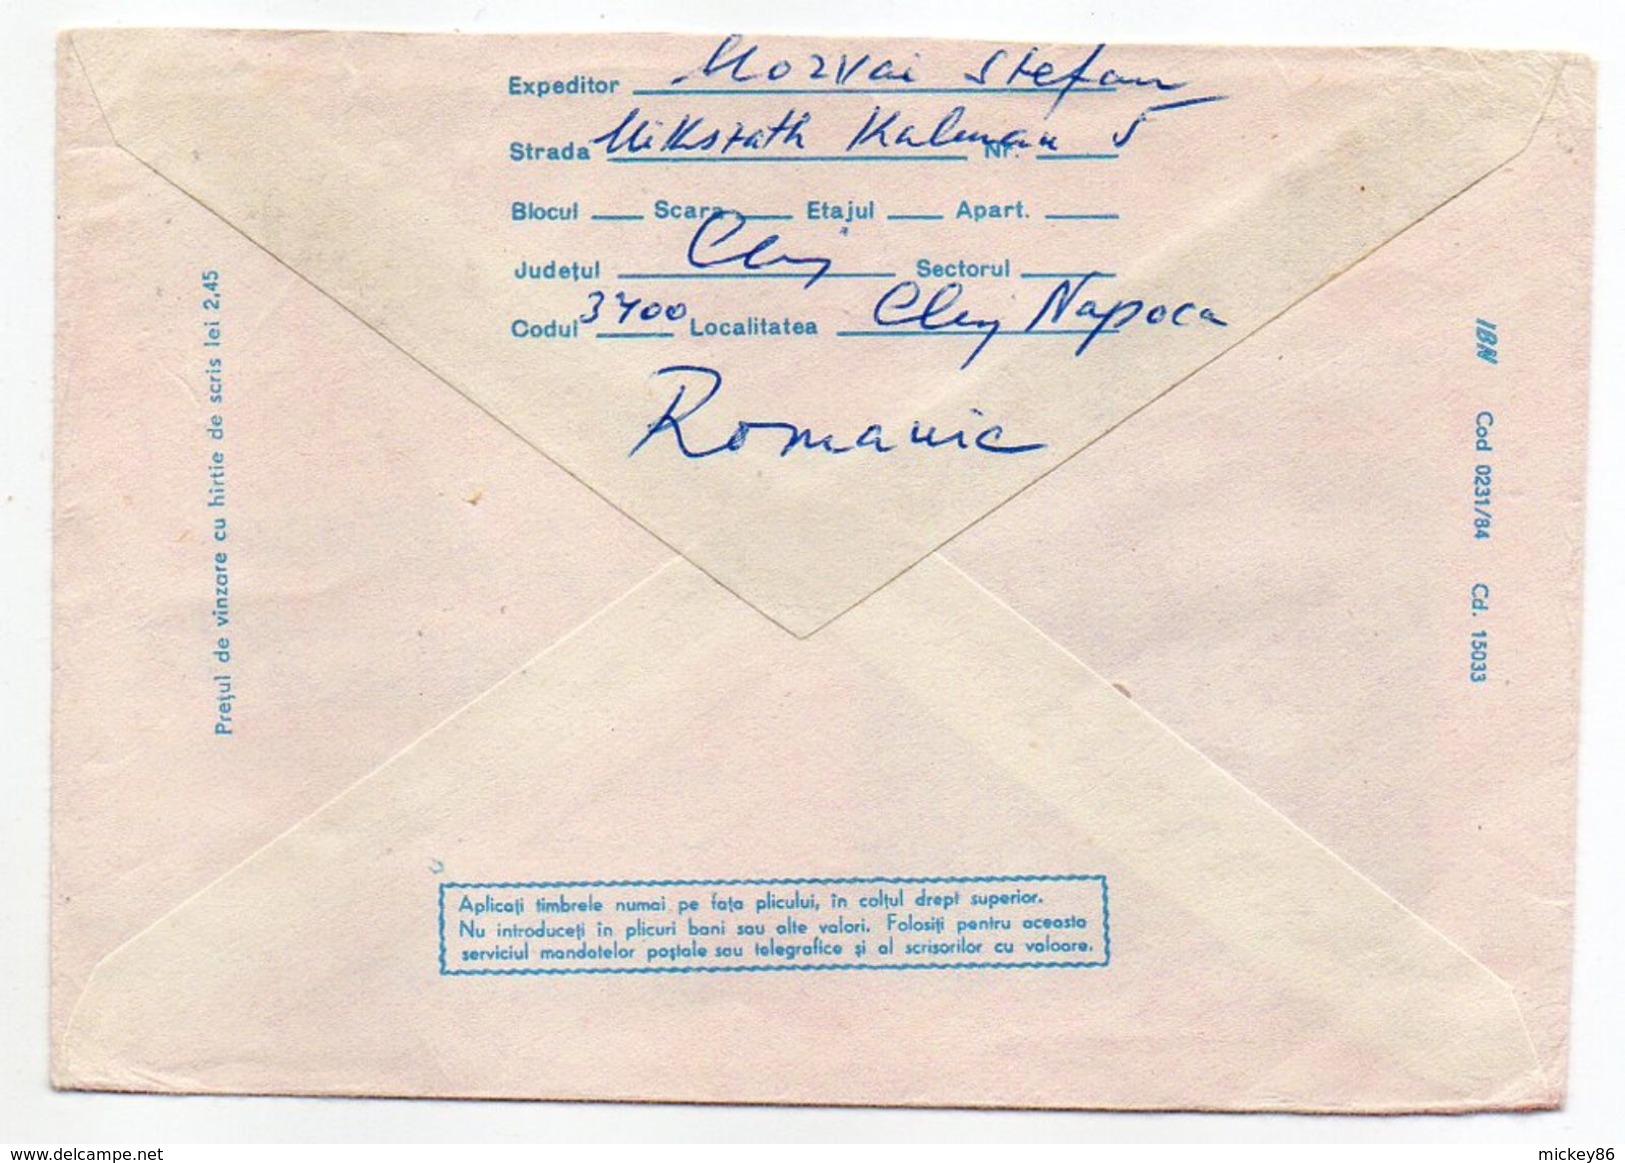 Expeditor Morvai Stefan
Strada Mikszath Kalman Nr. 5
Blocul Scara Etajul Apart.
Județul Cluj Sectorul
Codul 3400 Localitatea Cluj Napoca
Romania
Prețul de vînzare cu hîrtie de scris lei 2,45
IBN Cod 0231/84 Cd. 15033
Aplicați timbrele numai pe fața plicului, în colțul drept superior.
Nu introduceți în plicuri bani sau alte valori. Folosiți pentru aceasta
serviciul mandatelor poștale sau telegrafice și al scrisorilor cu valoare.
www.delcampe.net
mickey86